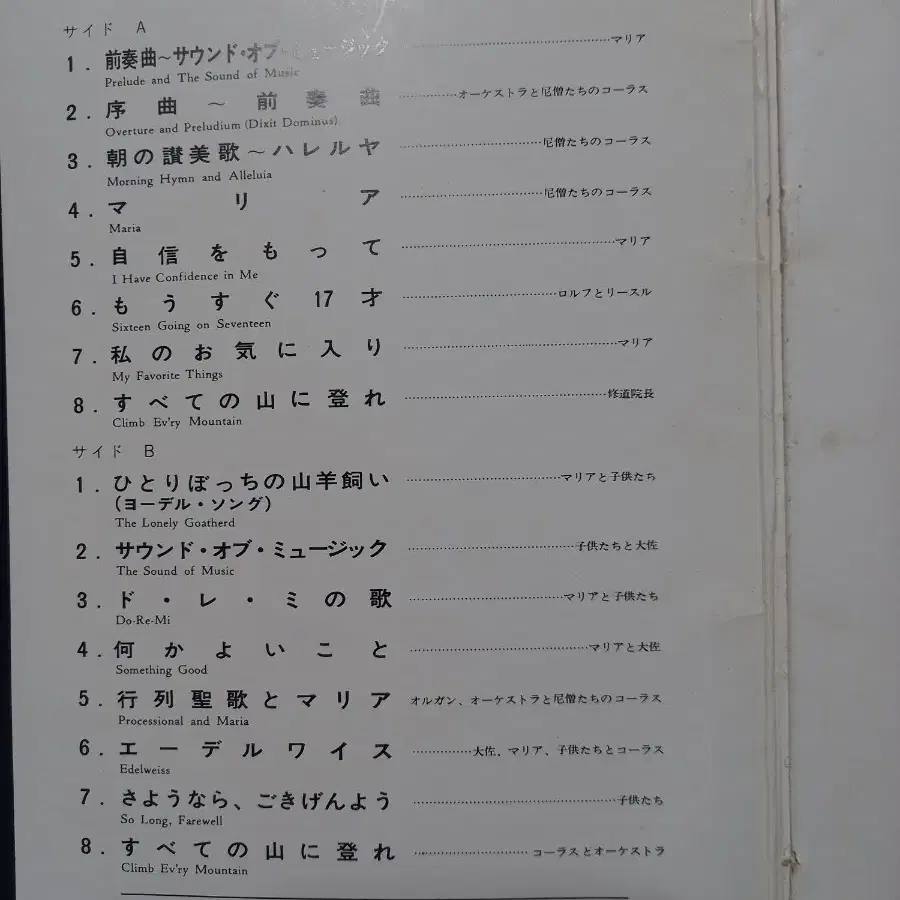 サイド A
1. 前奏曲～サウンド・オブ・ミュージック……マリア
Prelude and The Sound of Music
2. 序曲～前奏曲……オーケストラと尼僧たちのコーラス
Overture and Preludium (Dixit Dominus)
3. 朝の讃美歌～ハレルヤ……尼僧たちのコーラス
Morning Hymn and Alleluia
4. マリア……尼僧たちのコーラス
Maria
5. 自信をもって……マリア
I Have Confidence in Me
6. もうすぐ17才……ロルフとリースル
Sixteen Going on Seventeen
7. 私のお気に入り……マリア
My Favorite Things
8. すべての山に登れ……修道院長
Climb Ev'ry Mountain
サイド B
1. ひとりぼっちの山羊飼い……マリアと子供たち
(ヨーデル・ソング)
The Lonely Goatherd
2. サウンド・オブ・ミュージック……子供たちと大佐
The Sound of Music
3. ド・レ・ミの歌……マリアと子供たち
Do-Re-Mi
4. 何かよいこと……マリアと大佐
Something Good
5. 行列聖歌とマリア オルガン、オーケストラと尼僧たちのコーラス
Processional and Maria
6. エーデルワイス……大佐、マリア、子供たちとコーラス
Edelweiss
7. さようなら、ごきげんよう……子供たち
So Long, Farewell
8. すべての山に登れ……コーラスとオーケストラ
Climb Ev'ry Mountain